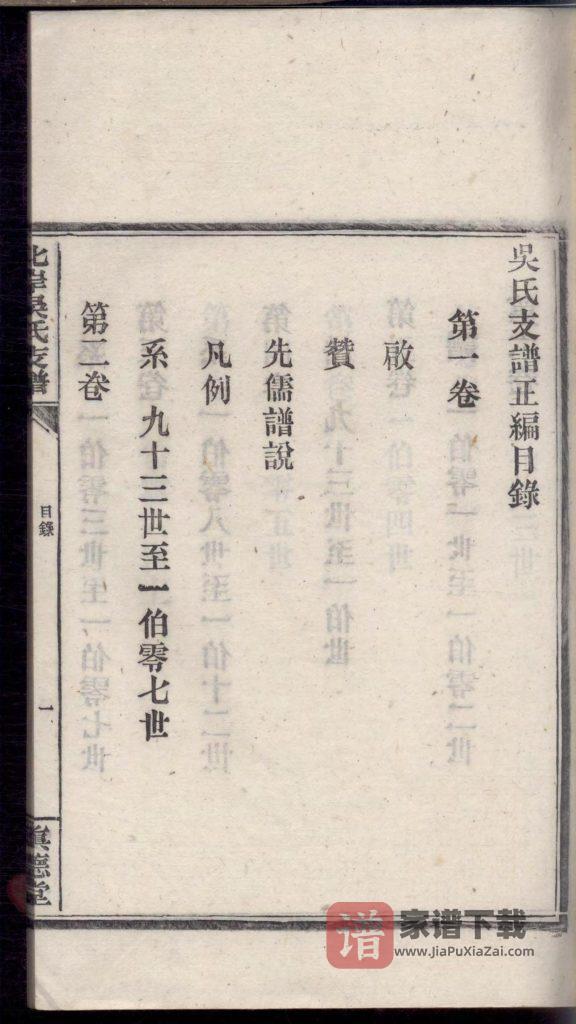 吳氏支譜正編目錄
第一卷
啟
贊
先儒譜說
凡例
系九十三世至一伯零七世
第二卷
北岸吳氏支譜
目錄
一
真德堂
谱 家谱下载
www.JiaPuXiaZai.com